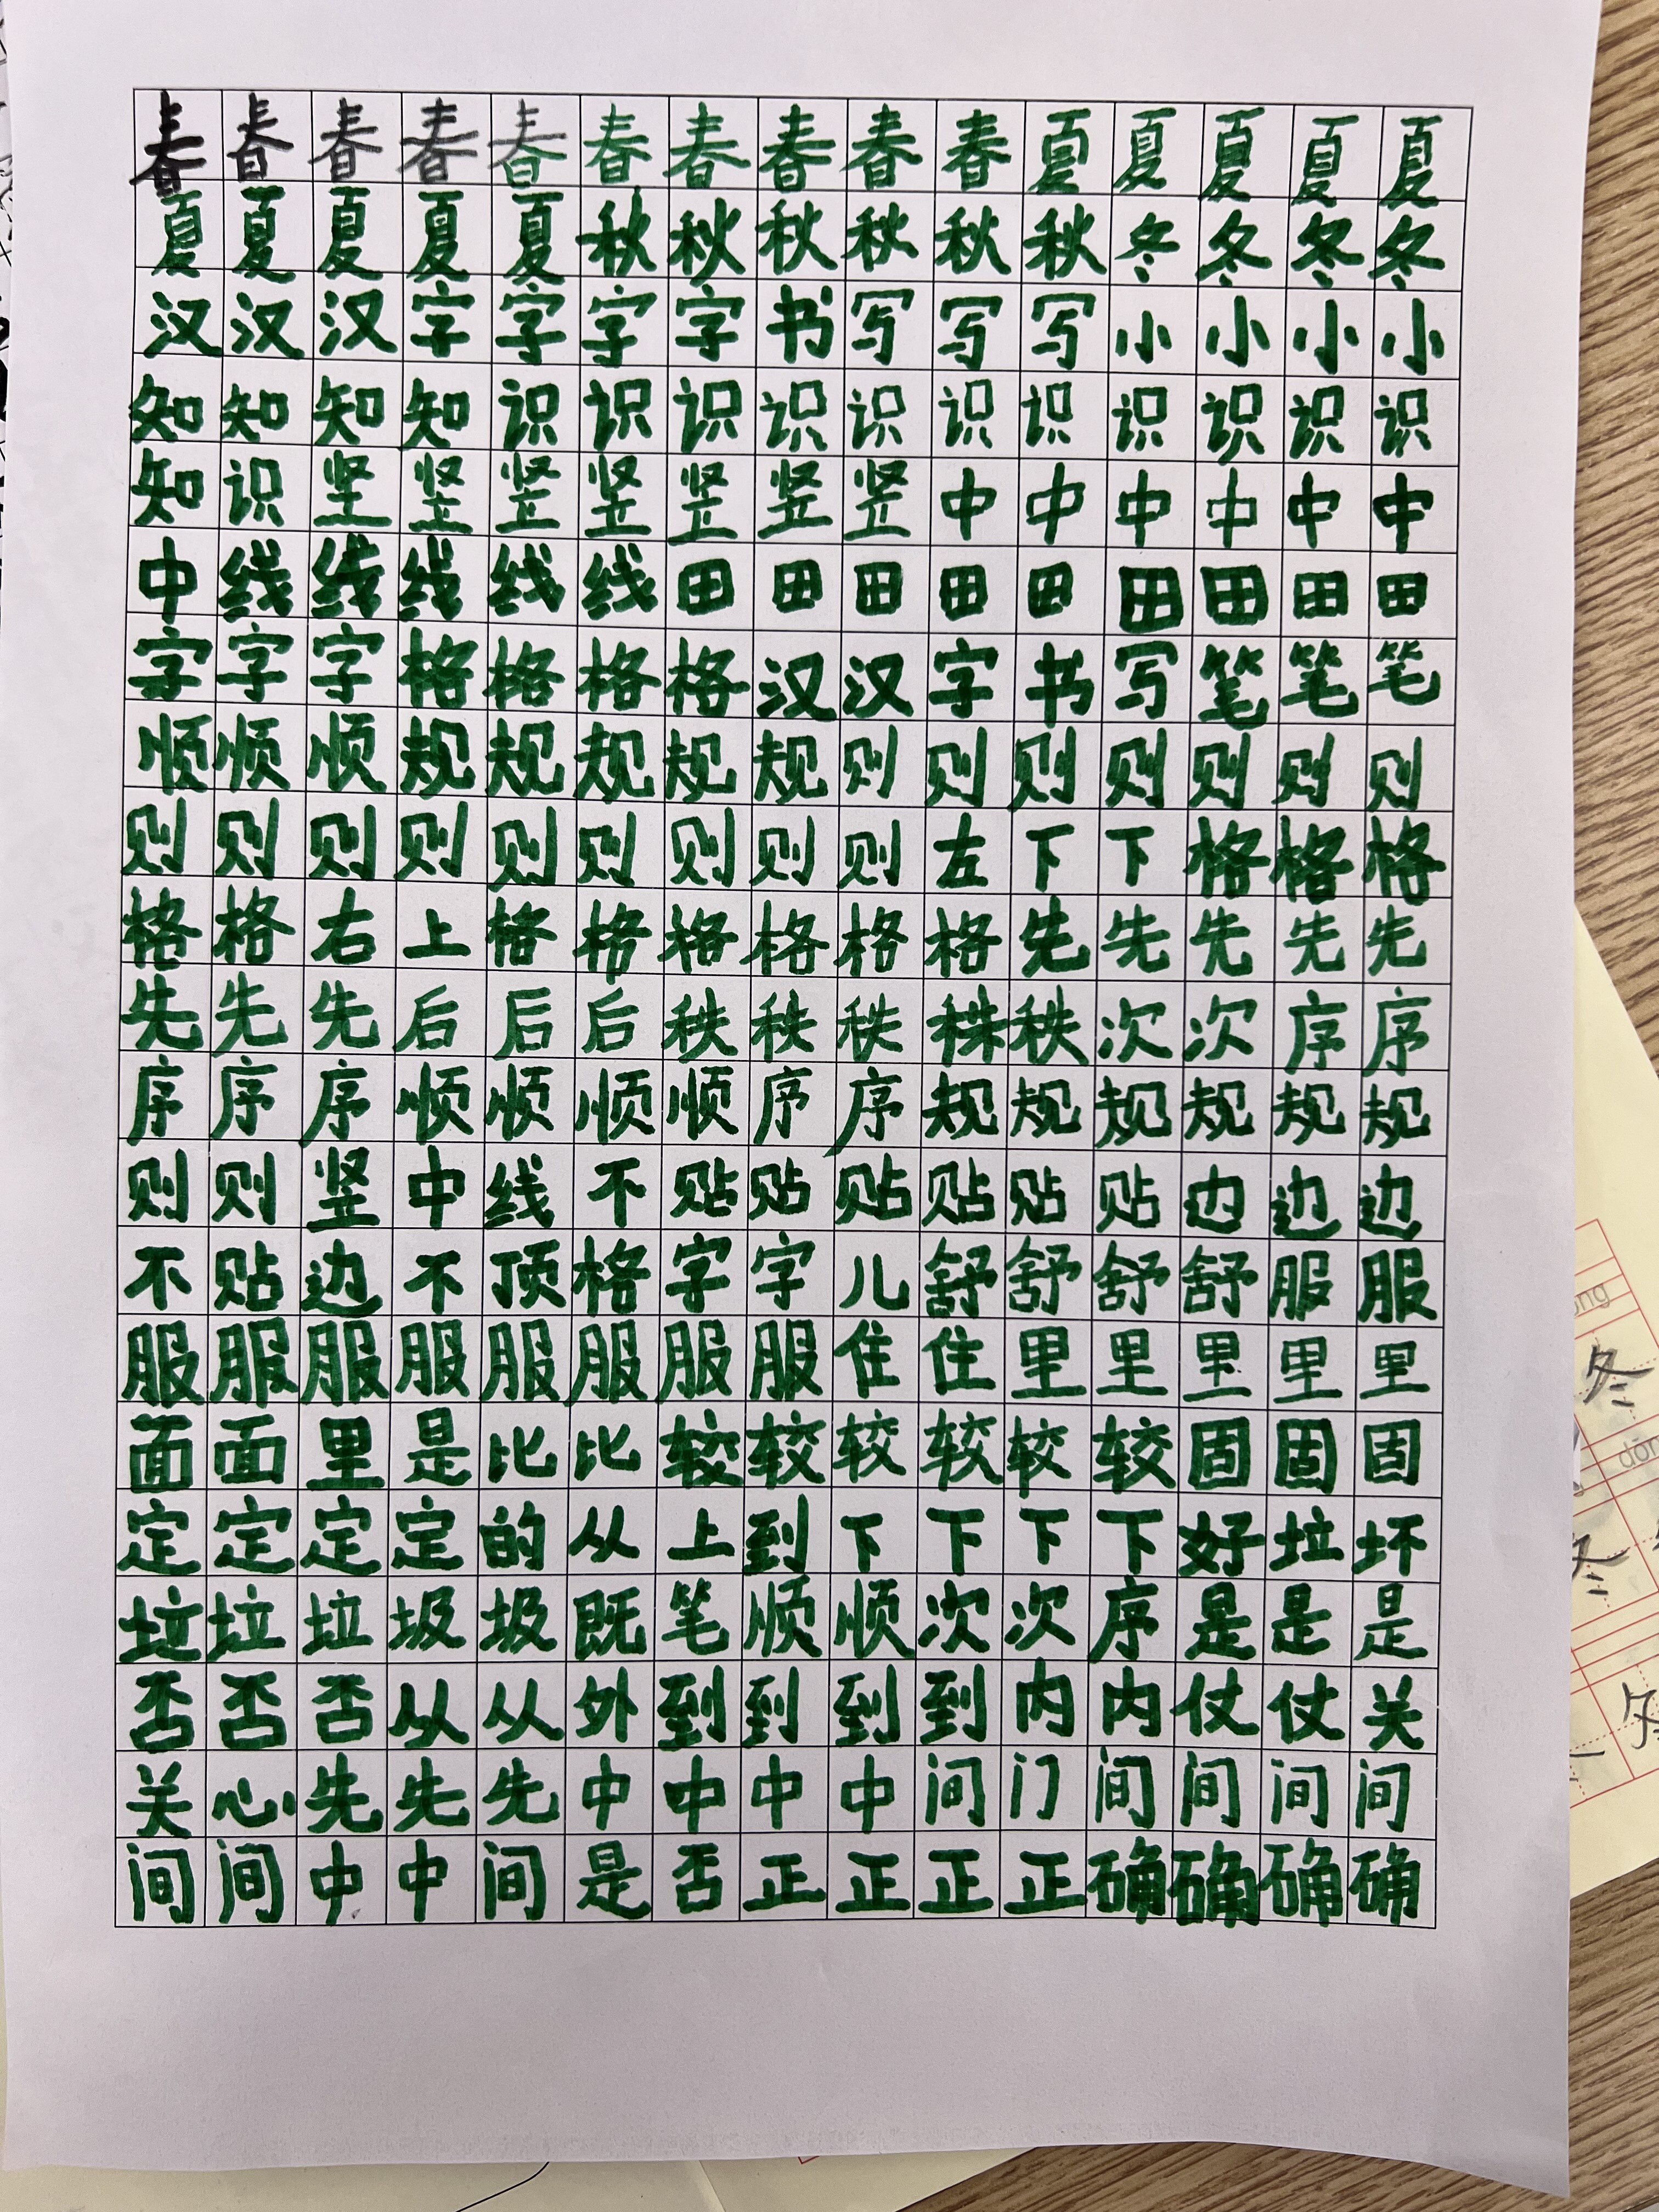 春春春春春春春春春春夏夏夏夏夏
夏夏夏夏夏秋秋秋秋秋秋冬冬冬冬
汉汉汉字字字字书写写写小小小小
知知知知识识识识识识识识识识识
知识竖竖竖竖竖竖竖中中中中中中
中线线线线线田田田田田田田田田
字字字格格格格汉汉字书写笔笔笔
顺顺顺规规规规规则则则则则则则
则则则则则则则则则左下下格格格
格格右上格格格格格格先先先先先
先先先后后后秩秩秩秩秩次次序序
序序序顺顺顺顺序序规规规规规规
则则竖中线不贴贴贴贴贴贴边边边
不贴边不顶格字字儿舒舒舒舒服服
服服服服服服服服住住里里里里里
面面里是比比较较较较较较固固固
定定定定的从上到下下下下好垃坏
垃垃垃圾圾既笔顺顺次次序是是是
否否否从从外到到到到内内仗仗关
关心先先先中中中中间门间间间间
间间中中间是否正正正正确确确确
冬
冬